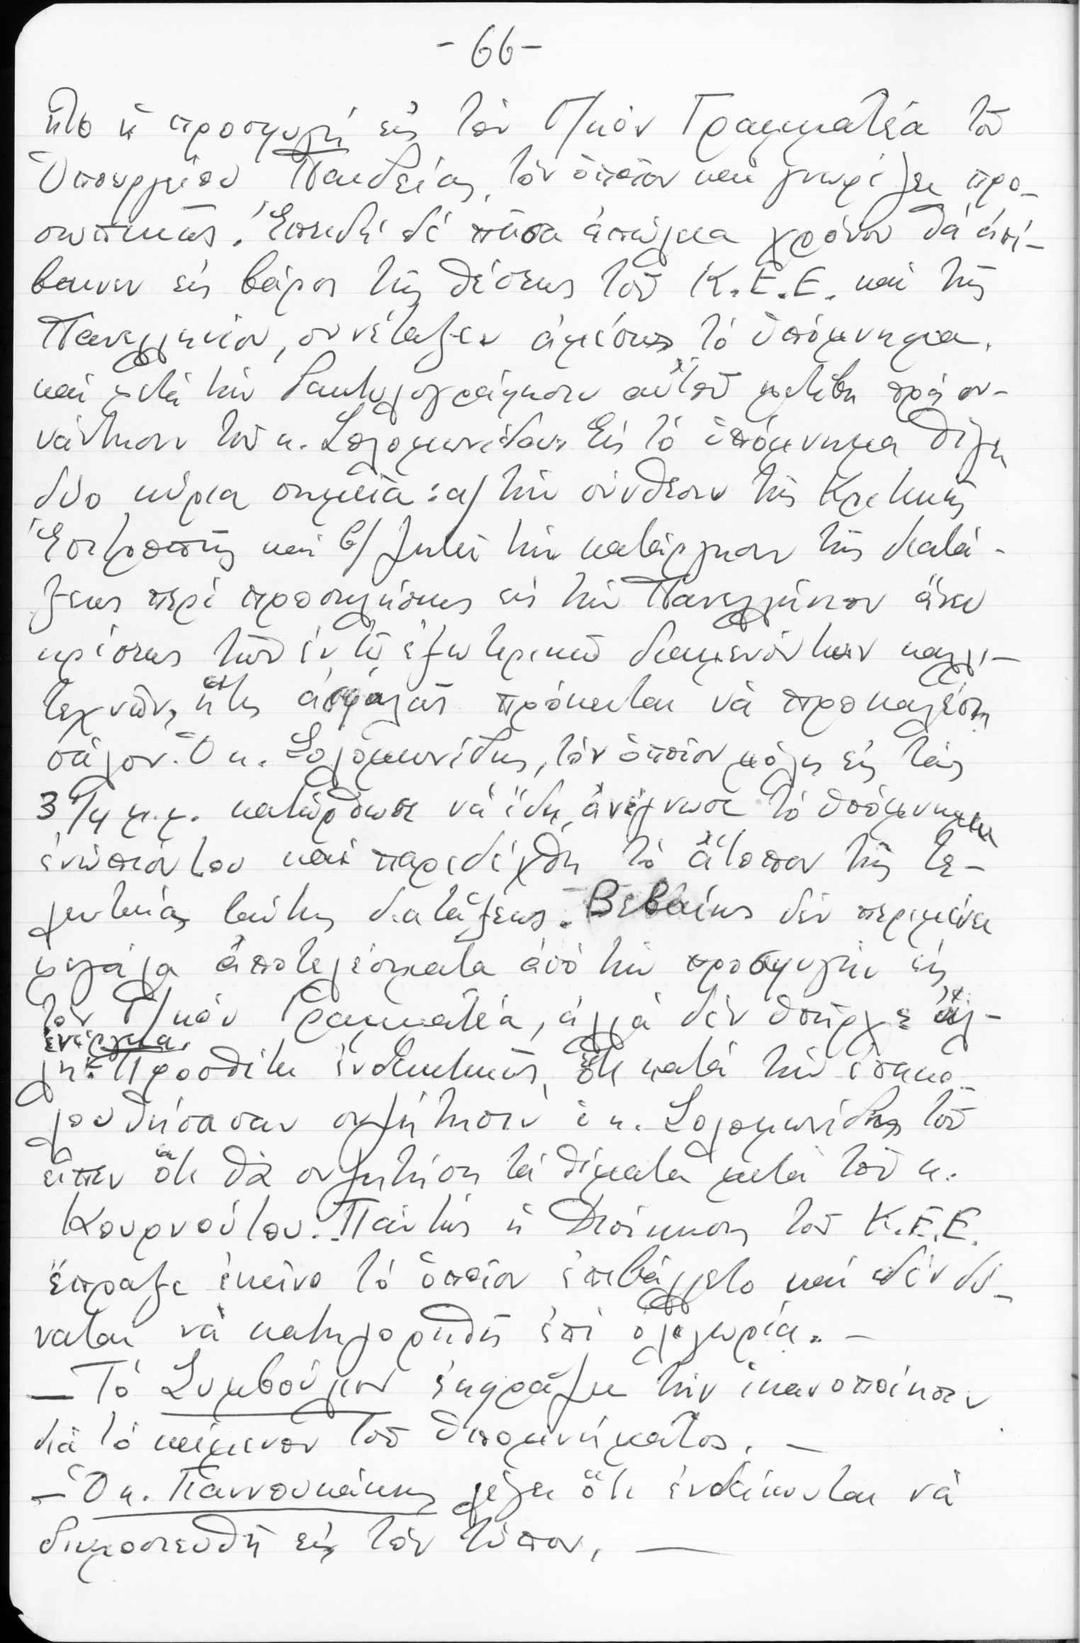 -66-
ἦτο ἡ προσφυγή εἰς τόν Γ/κόν Γραμματέα τοῦ
Ὑπουργείου Παιδείας, τόν ὁποῖον καί γνωρίζει προ-
σωπικῶς. Ἐπειδή δέ πᾶσα ἀπώλεια χρόνου θά ἀπέ-
βαινεν εἰς βάρος τῆς θέσεως τοῦ Κ.Ε.Ε. καί τῆς
Πανελληνίου, συνέταξεν ἀμέσως τό ὑπόμνημα,
καί μετά τήν δακτυλογράφησιν αὐτοῦ μετέβη πρός συ-
νάντησιν τοῦ κ. Σολομωνίδου. Εἰς τό ὑπόμνημα θίγει
δύο κύρια σημεῖα: α/ τήν σύνθεσιν τῆς Κριτικῆς
Ἐπιτροπῆς καί β/ ζητεῖ τήν κατάργησιν τῆς διατά-
ξεως περί προσκλήσεως εἰς τήν Πανελλήνιον ἄνευ
κρίσεως τῶν ἐν τῷ ἐξωτερικῷ διαμενόντων καλλι-
τεχνῶν, ἥτις ἀσφαλῶς πρόκειται νά προκαλέσῃ
σάλον. Ὁ κ. Σολομωνίδης, τόν ὁποῖον μόλις εἰς τάς
3 1/4 μ.μ. κατώρθωσε νά ἴδῃ, ἀνέγνωσε τό ὑπόμνημα
ἐνώπιόν του καί παρεδέχθη τό ἄτοπον τῆς τε-
λευταίας ταύτης διατάξεως. Βεβαίως δέν περιμένει
μεγάλα ἀποτελέσματα ἀπό τήν προσφυγήν εἰς
τόν Γ/κόν Γραμματέα, ἀλλά δέν ὑπῆρχε ἄλ-
λη ἐνέργεια. Προσθέτει ἐνδεικτικῶς, ὅτι κατά τήν ἐπακο-
λουθήσασαν συζήτησιν ὁ κ. Σολομωνίδης τοῦ
εἶπεν ὅτι θά συζητήσῃ τά θέματα μετά τοῦ κ.
Κουρνούτου. Πάντως ἡ Διοίκησις τοῦ Κ.Ε.Ε.
ἔπραξε ἐκεῖνο τό ὁποῖον ἐπεβάλλετο καί δέν δύ-
ναται νά κατηγορηθῇ ἐπί ὀλιγωρίᾳ. —
— Τό Συμβούλιον ἐκφράζει τήν ἱκανοποίησιν
διά τό κείμενον τοῦ ὑπομνήματος. —
— Ὁ κ. Γιαννουκάκης λέγει ὅτι ἐνδείκνυται νά
δημοσιευθῇ εἰς τόν τύπον. —